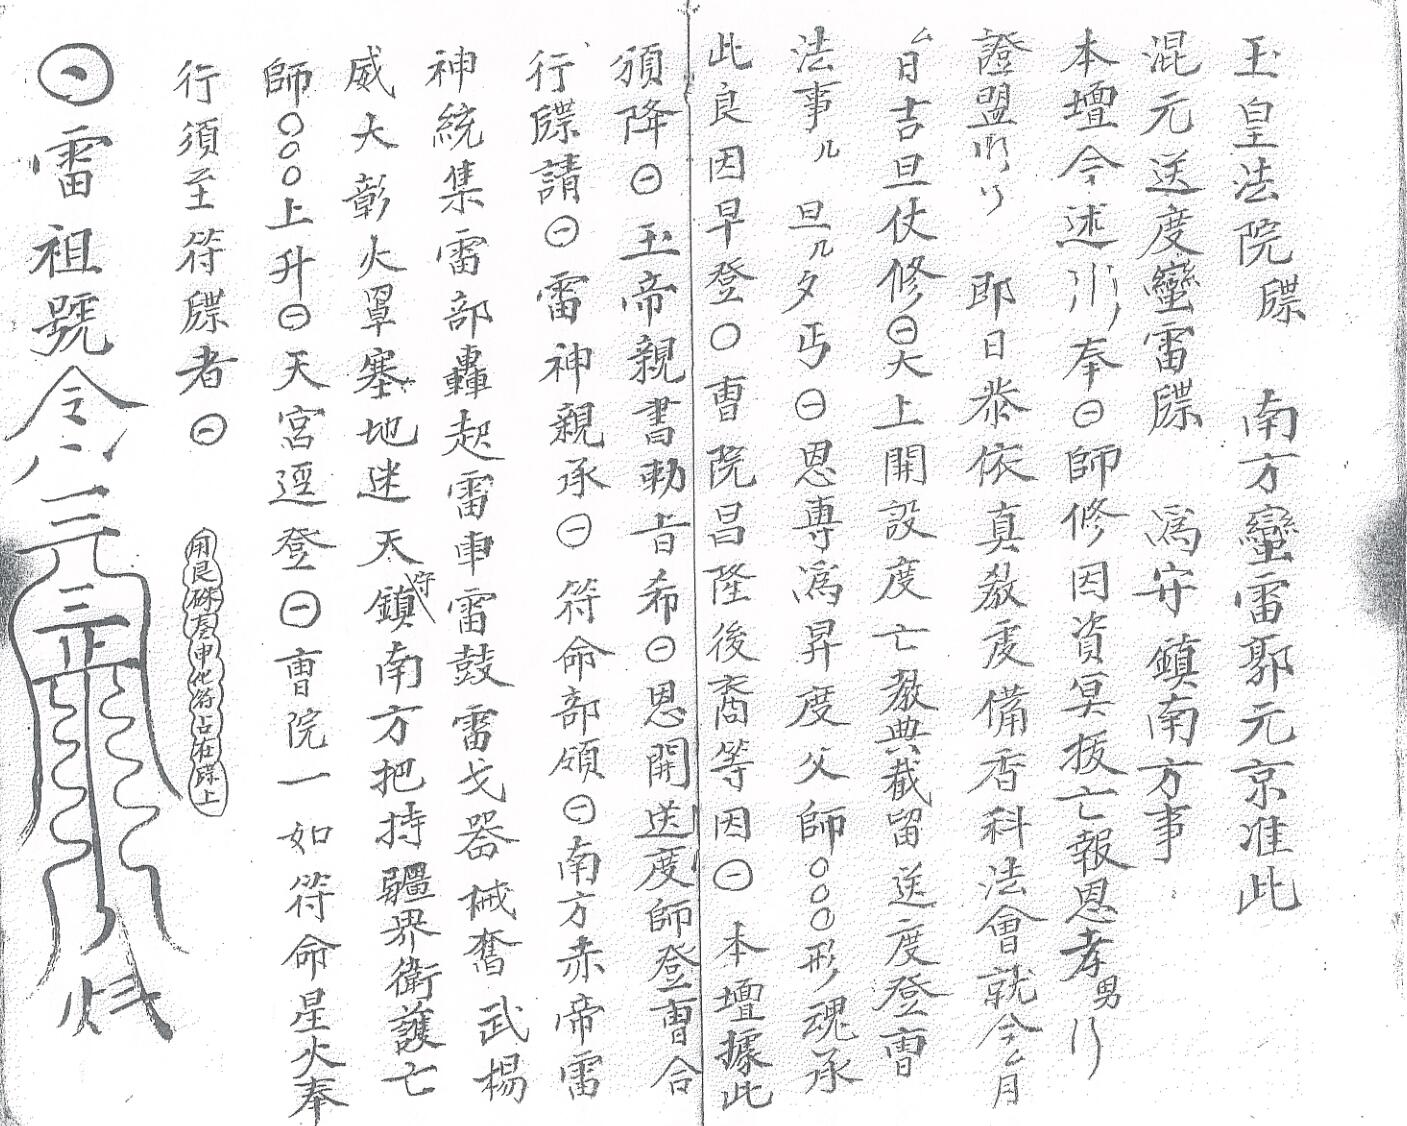 玉皇法院牒　南方蠻雷郭元京准此
混元送度蠻雷牒　為守鎮南方事
本壇今述 奉⊖師修因資冥拔亡報恩孝男
證盟 即日恭依真教虔備香科法會就今厶月
厶日吉旦仗修⊖大上開設度亡教典截留送度登曹
法事 旦 夕丐⊖恩專為昇度父師○○○形魂承
此良因早登○曹院昌隆後裔等因⊖本壇據此
須降⊖玉帝親書勅旨希⊖恩開送度師登曹合
行牒請⊖雷神親承⊖符命部領⊖南方赤帝雷
神統集雷部轟起雷車雷鼓雷戈器械奮武揚
威大彰火罩塞地迷天守鎮南方把持疆界衛護亡
師○○○上升⊖天宮逕登⊖曹院一如符命星火奉
行須至符牒者⊖
用良硃 申化符占在牒上
⊙雷祖號令